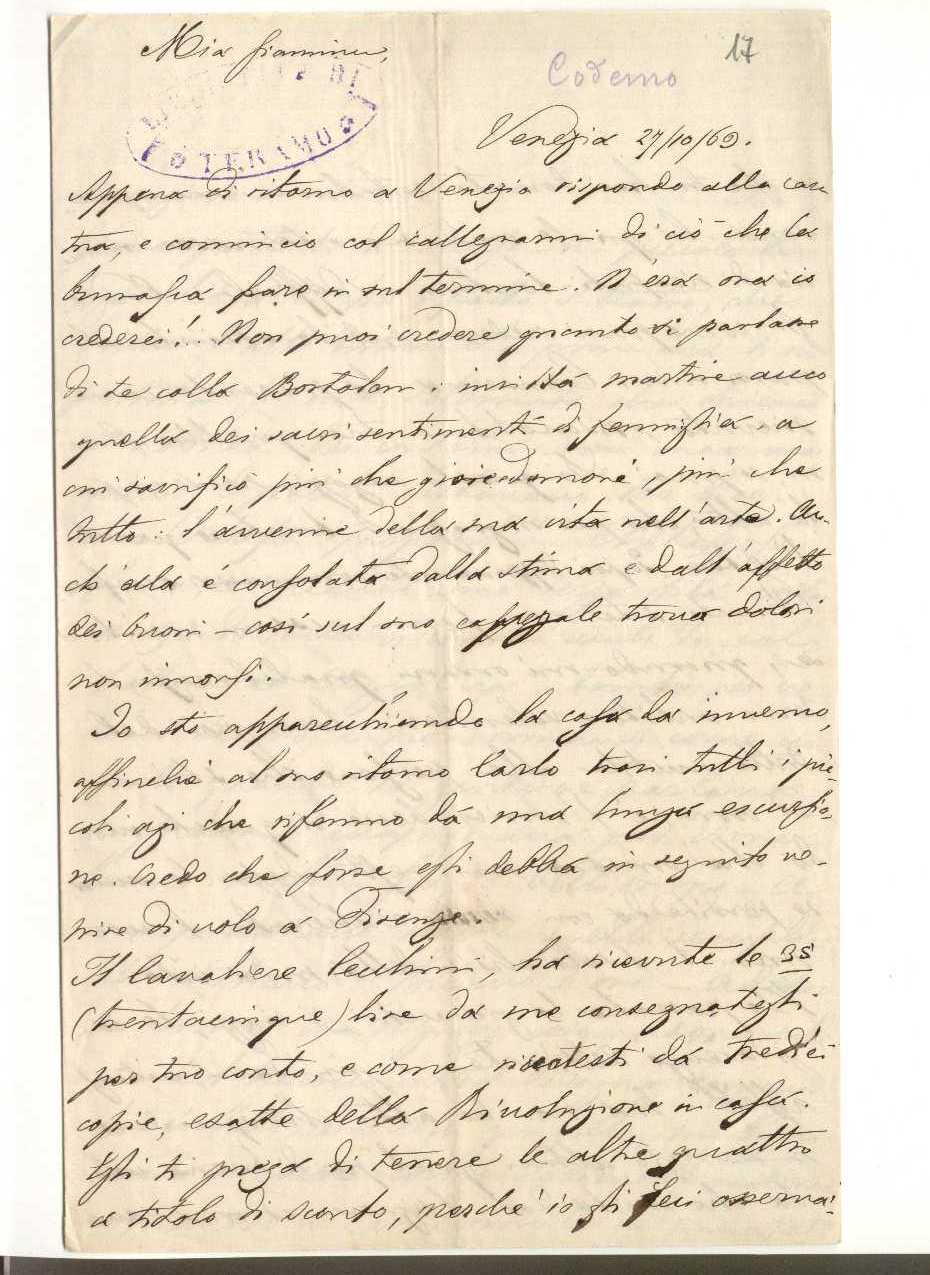 Mia Giannina,
17
Codemo
TERAMO
Venezia 27/10/69.
Appena di ritorno a Venezia rispondo alla cara
tua, e comincio col rallegrarmi di ciò che la
pare in sul termine. N'era ora io
crederei!.. Non puoi credere quanto si parlasse
di te colla Bortolan: invitta martire anco
quella dei sacri sentimenti di famiglia, a
cui sacrificò più che gioie d'amore, più che
tutto: l'avvenire della sua vita nell'arte. An-
ch'ella é consolata dalla stima e dall'affetto
dei buoni – così sul suo capezzale trova dolori
non rimorsi.
Io sto apparecchiando la casa da inverno,
affinchè al suo ritorno Carlo trovi tutti i pic-
coli agi che rifanno da una lunga escursio-
ne. Credo che forse egli debba in seguito ve-
nire di volo a Firenze.
Il Cavaliere Cecchini, ha ricevute le 35
(trentacinque) lire da me consegnategli
per tuo conto, e come ricavatesti da tredici
copie, esatte della Rivoluzione in casa.
Egli ti prega di tenere le altre quattro
a titolo di sconto, perché io gli feci osserva-